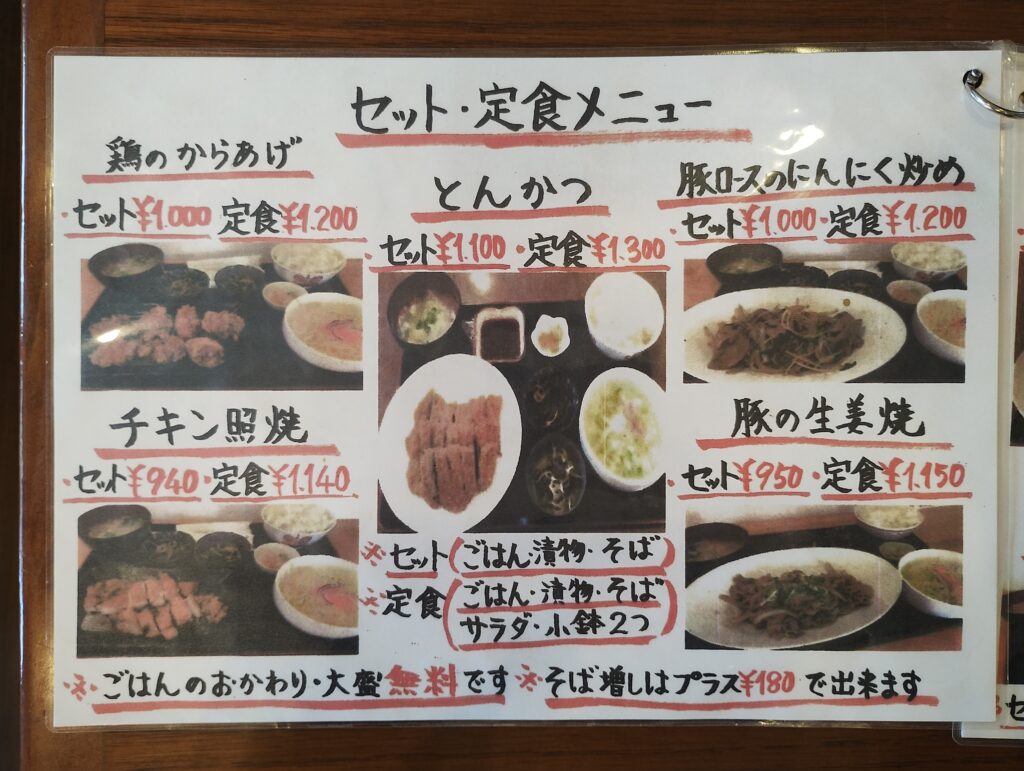 セット・定食メニュー
鶏のからあげ
・セット¥1.000 定食¥1.200
とんかつ
・セット¥1.100・定食¥1.300
豚ロースのにんにく炒め
・セット¥1.000・定食¥1.200
チキン照焼
・セット¥940・定食¥1.140
豚の生姜焼
・セット¥950・定食¥1.150
※セット(ごはん・漬物・そば)
※定食(ごはん・漬物・そば
サラダ・小鉢2つ)
※ごはんのおかわり・大盛無料です ※そば増しはプラス¥180で出来ます